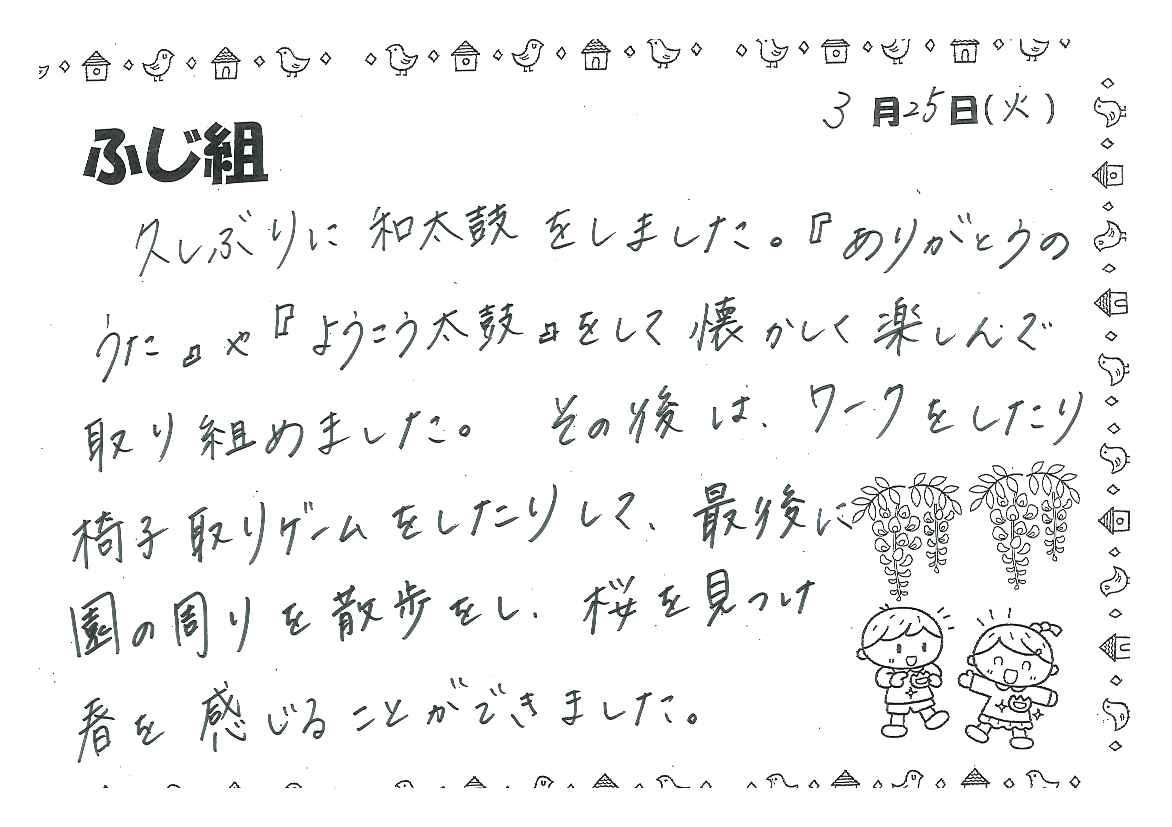 3月25日(火)
ふじ組
久しぶりに和太鼓をしました。『ありがとうの
うた』や『ようこう太鼓』をして懐かしく楽しんで
取り組めました。 その後は、ワークをしたり
椅子取りゲームをしたりして、最後に
園の周りを散歩をし、桜を見つけ
春を感じることができました。